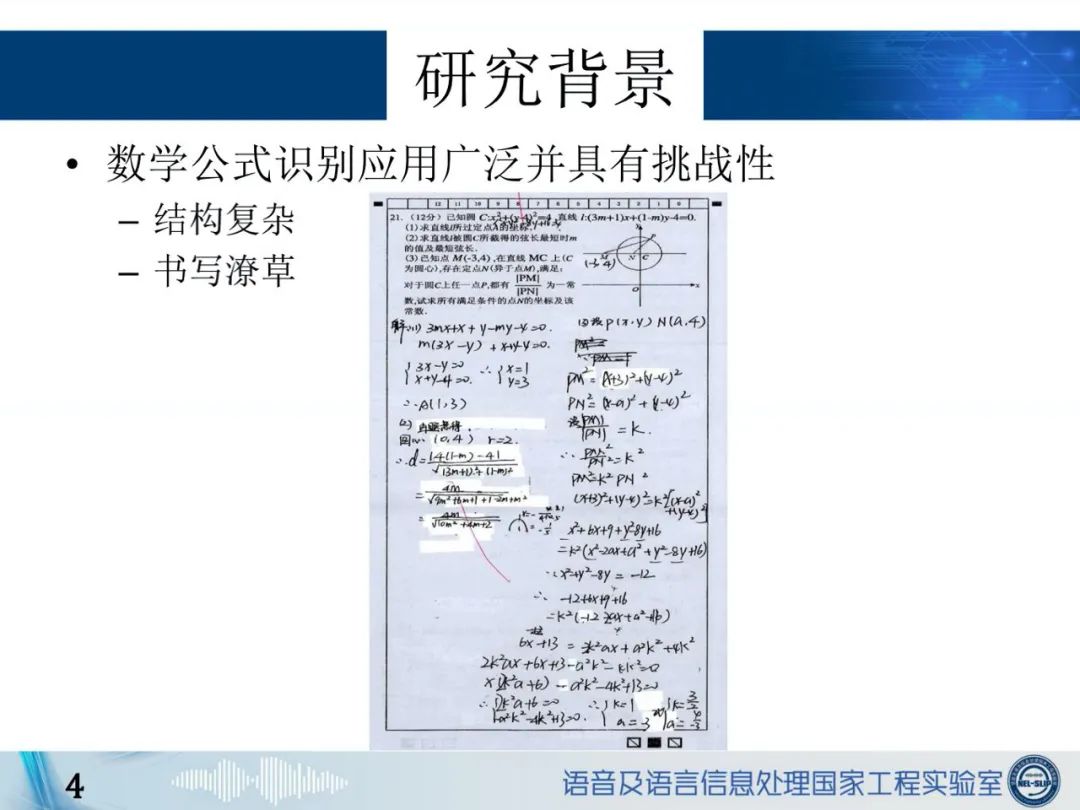 研究背景
• 数学公式识别应用广泛并具有挑战性
– 结构复杂
– 书写潦草
12 11 10 9 8 7 6 5 4 3 2 1 0
21.（12分）已知圆 C:x²+(y-4)²=4,直线 l:(3m+1)x+(1-m)y-4=0.
(1)求直线l所过定点A的坐标.
(2)求直线l被圆C所截得的弦长最短时m
的值及最短弦长.
(3)已知点 M(-3,4),在直线 MC 上(C
为圆心),存在定点N(异于点M),满足:
对于圆C上任一点P,都有 |PM|/|PN| 为一常
数,试求所有满足条件的点N的坐标及该
常数.
(-3,4) N C
y
x
O
解:(1) 3mx+x+y-my-4=0.
m(3x-y)+x+y-4=0.
{3x-y=0 x+y-4=0. ∴{x=1 y=3
∴A(1,3)
(2)
圆心(0,4) r=2.
∴d=|4(1-m)-4|/√(3m+1)²+(1-m)²
=4m/√9m²+6m+1+1-2m+m²
=4m/√10m²+4m+2
(3)设P(x,y) N(a,4)
PM²=(x+3)²+(y-4)²
PN²=(x-a)²+(y-4)²
设|PM|/|PN|=k.
∴PM²/PN²=k²
PM²=k²PN²
(x+3)²+(y-4)²=k²[(x-a)²+(y-4)²]
x²+6x+9+y²-8y+16
=k²(x²-2ax+a²+y²-8y+16)
∵x²+y²-8y=-12
∴-12+6x+9+16
=k²(-12-2ax+a²+16)
6x+13=-2k²ax+a²k²+4k²
2k²ax+6x+13-a²k²-4k²=0
x(2k²a+6)-a²k²-4k²+13=0
∴{2k²a+6=0 -a²k²-4k²+13=0.
∴{k=1 a=-3 或{k=3/2 a=-4/3
4
语音及语言信息处理国家工程实验室
NEL-SLIP